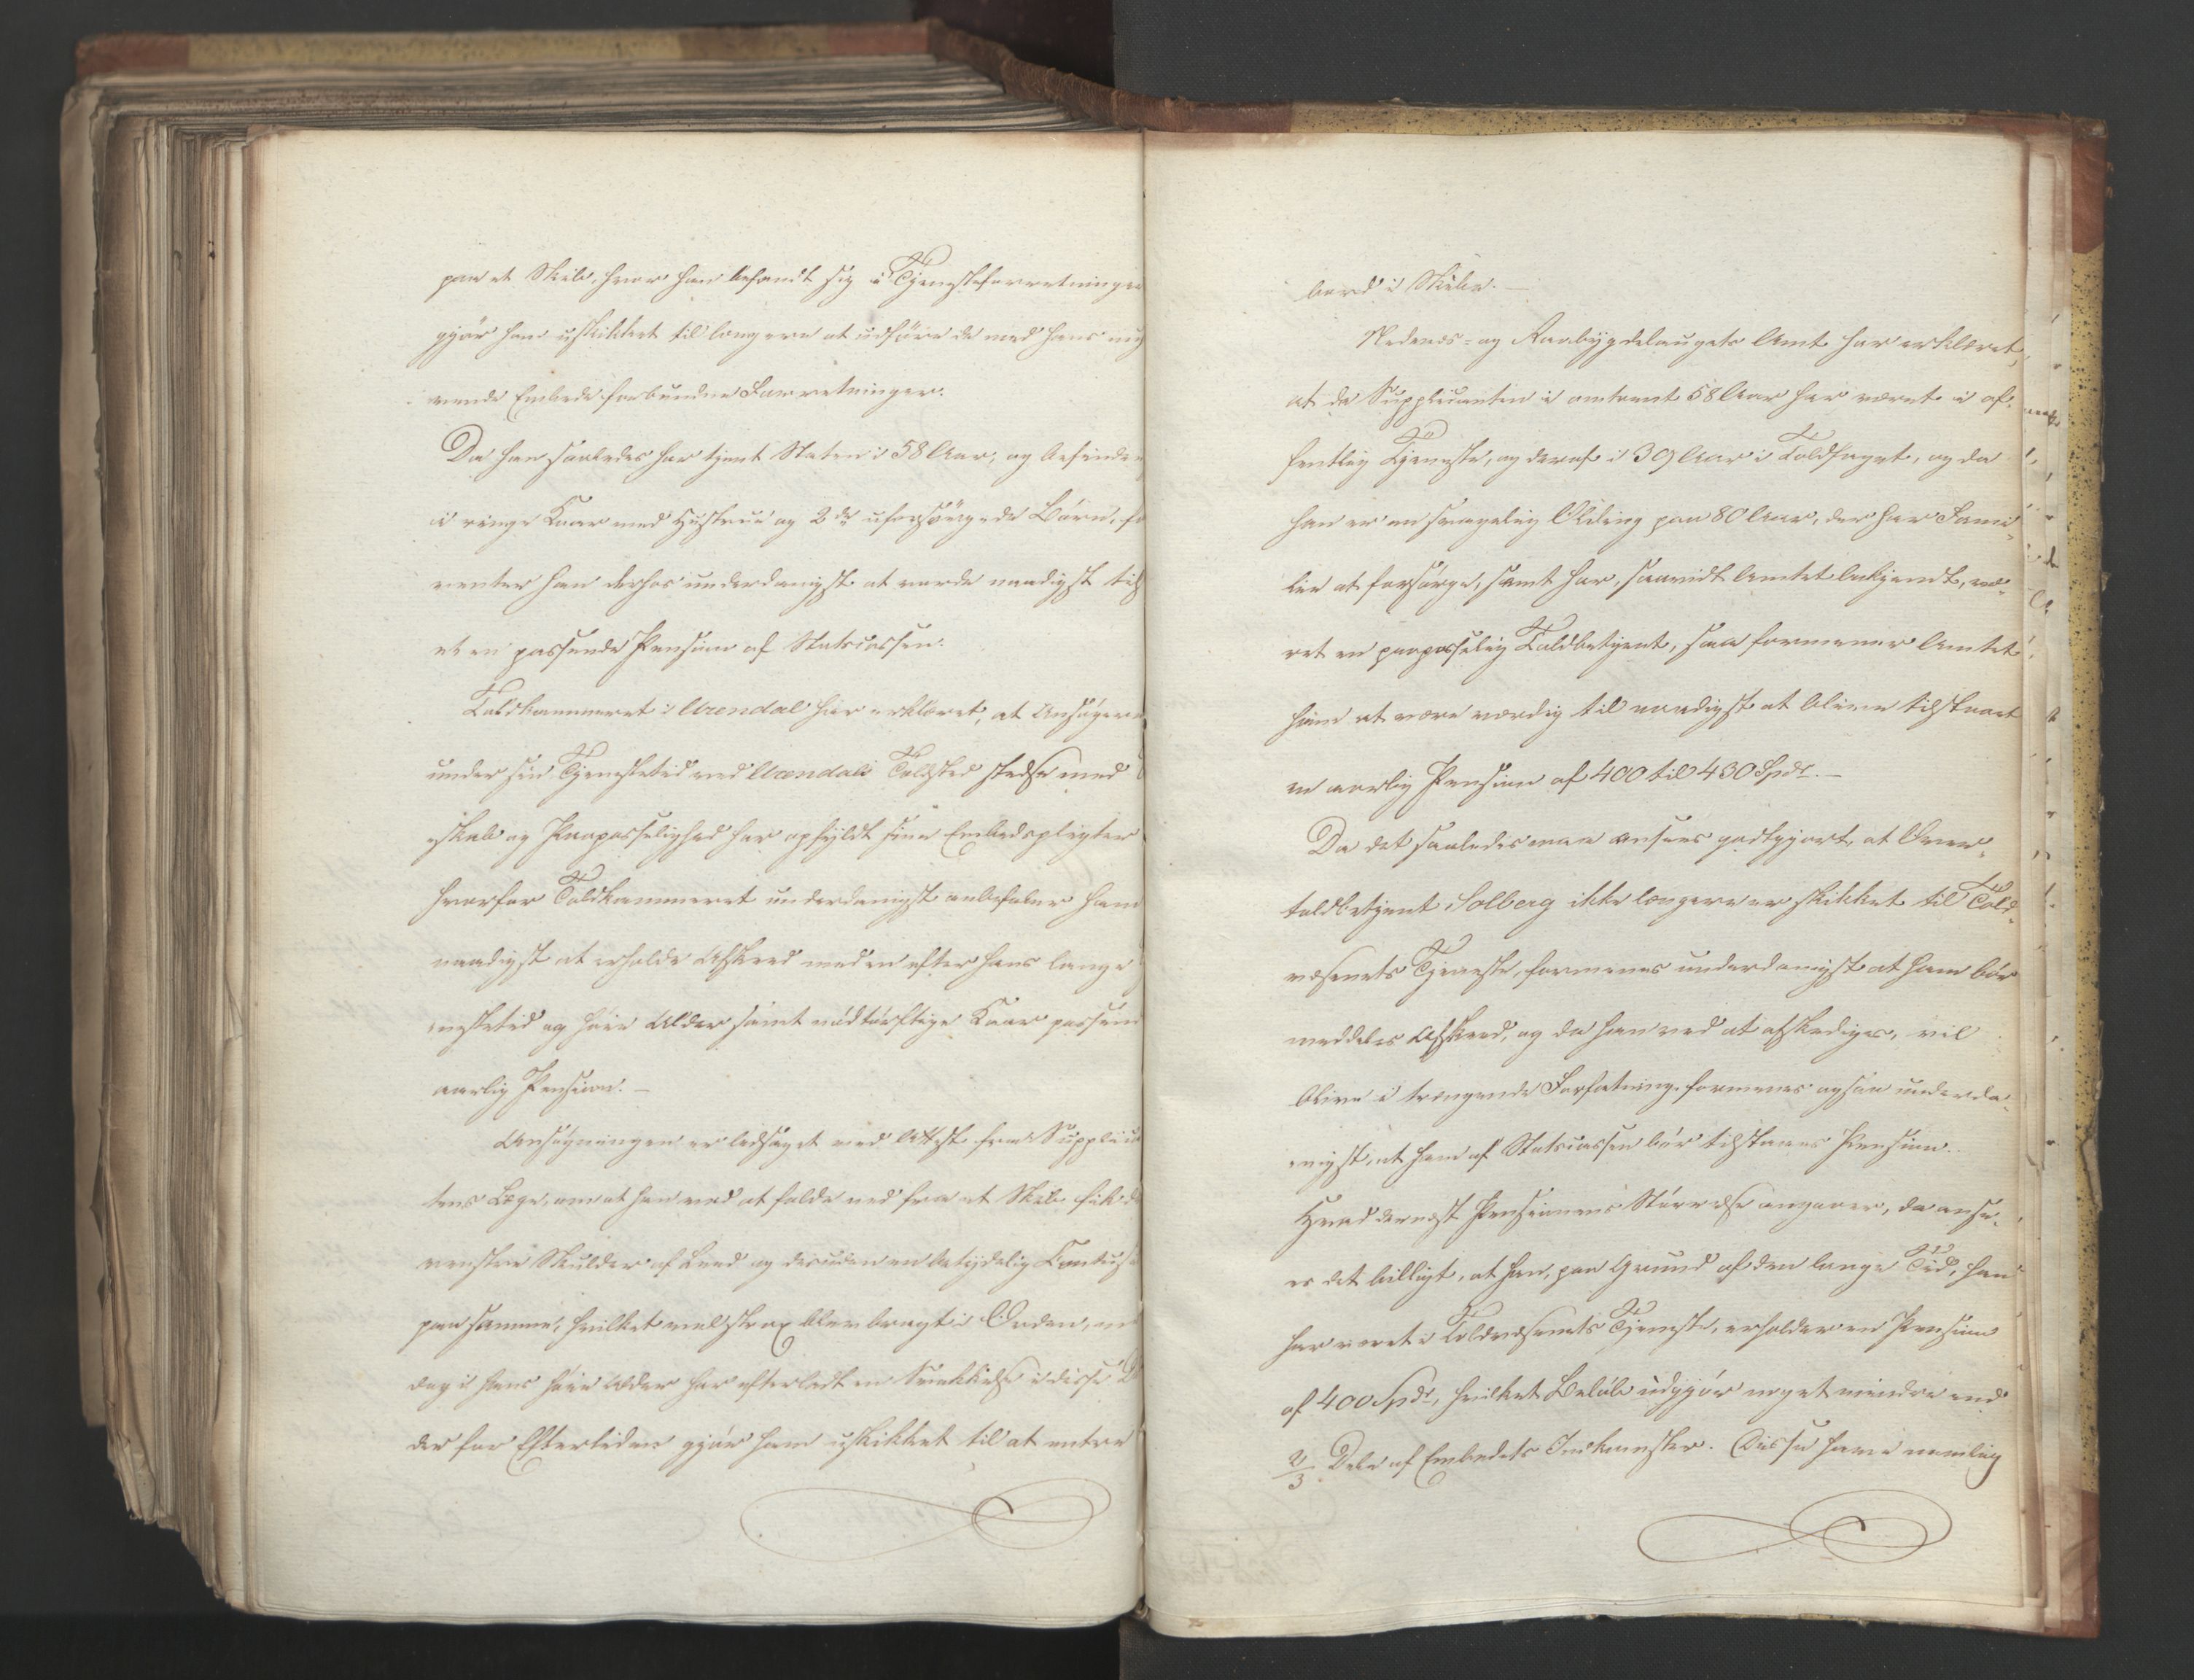 paa et Skib, hvor han befandt sig i Tjenesteforretninger
gjør ham uskikket til længere at udføre de med hans nu
værende Embede forbundne Forretninger.
Da han saaledes har tjent Staten i 58 Aar, og befinder
i ringe Kaar med Hustrue og 2de uforsørgede Børn, for
venter han derhos underdanigst at vorde naadigst til
et en passende Pension af Statscassen.
Toldkammeret i Arendal har erklæret, at Ansøgeren
under sin Tjenestetid ved Arendals Toldsted stedse med
skab og Paapasselighed har opfyldt sine Embedspligter
hvorfor Toldkammeret underdanigst anbefaler ham
naadigst at erholde Afskeed med en efter hans lange
nestetid og høie Alder samt nødtørftige Kaar passen
aarlig Pension. —
Ansøgningen er ledsaget med Attest fra Supplic
tens Læge, om at han ved at falde ned fra et Skib fik de
venstre Skulder af Leed og desuden en betydelig Contus
paa samme, hvilket vel strax blev bragt i Orden, me
dog i hans høie Alder har efterladt en Svækkelse i disse
der for Eftertiden gjør ham uskikket til at entre
bord i Skibe. —
Nedenæs- og Raabygdelaugets Amt har erklæret,
at da Supplicanten i omtrent 58 Aar har været i of-
fentlig Tjeneste, og deraf i 39 Aar i Toldfaget, og da
han er en svagelig Olding paa 80 Aar, der har Fami-
lie at forsørge, samt har, saavidt Amtet bekjendt, væ-
ret en paapasselig Toldbetjent, saa formener Amtet
ham at være værdig til naadigst at blive tilstaaet
en aarlig Pension af 400 til 430 Spdr. —
Da det saaledes maa ansees godtgjort, at Over-
toldbetjent Solberg ikke længere er skikket til Told-
væsenets Tjeneste, formenes underdanigst at ham bør
meddeles Afskeed, og da han ved at afskediges, vil
blive i trængende Forfatning, formenes ogsaa underda-
nigst, at ham af Statscassen bør tilstaaes Pension.
Hvad dernæst Pensionens Størrelse angaaer, da ansee-
es det billigt, at han, paa Grund af den lange Tid, han
har været i Toldvæsenets Tjeneste, erholder en Pension
af 400 Spdr, hvilket Beløb udgjør noget mindre end
2/3 Dele af Embedets Indkomster. Disse have nemlig